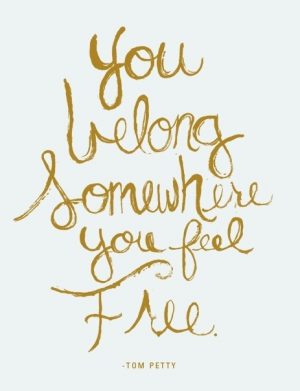 you
belong
Somewhere
you feel
Free.
-TOM PETTY